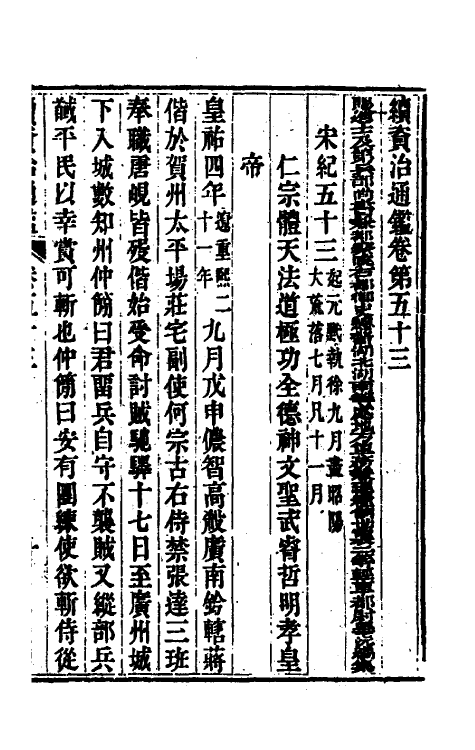 續資治通鑑卷第五十三
宋紀五十三 起元黓執徐九月盡昭陽大荒落七月凡十一月
仁宗體天法道極功全德神文聖武睿哲明孝皇
帝
皇祐四年 遼重熙二十一年 九月戊申儂智高殺廣南鈐轄蔣
偕於賀州太平場莊宅副使何宗古右侍禁張達三班
奉職唐峴皆殁偕始受命討賊馳驛十七日至廣州城
下入城數知州仲簡曰君畱兵自守不襲賊又縱部兵
馘平民以幸賞可斬也仲簡曰安有團練使欲斬侍從